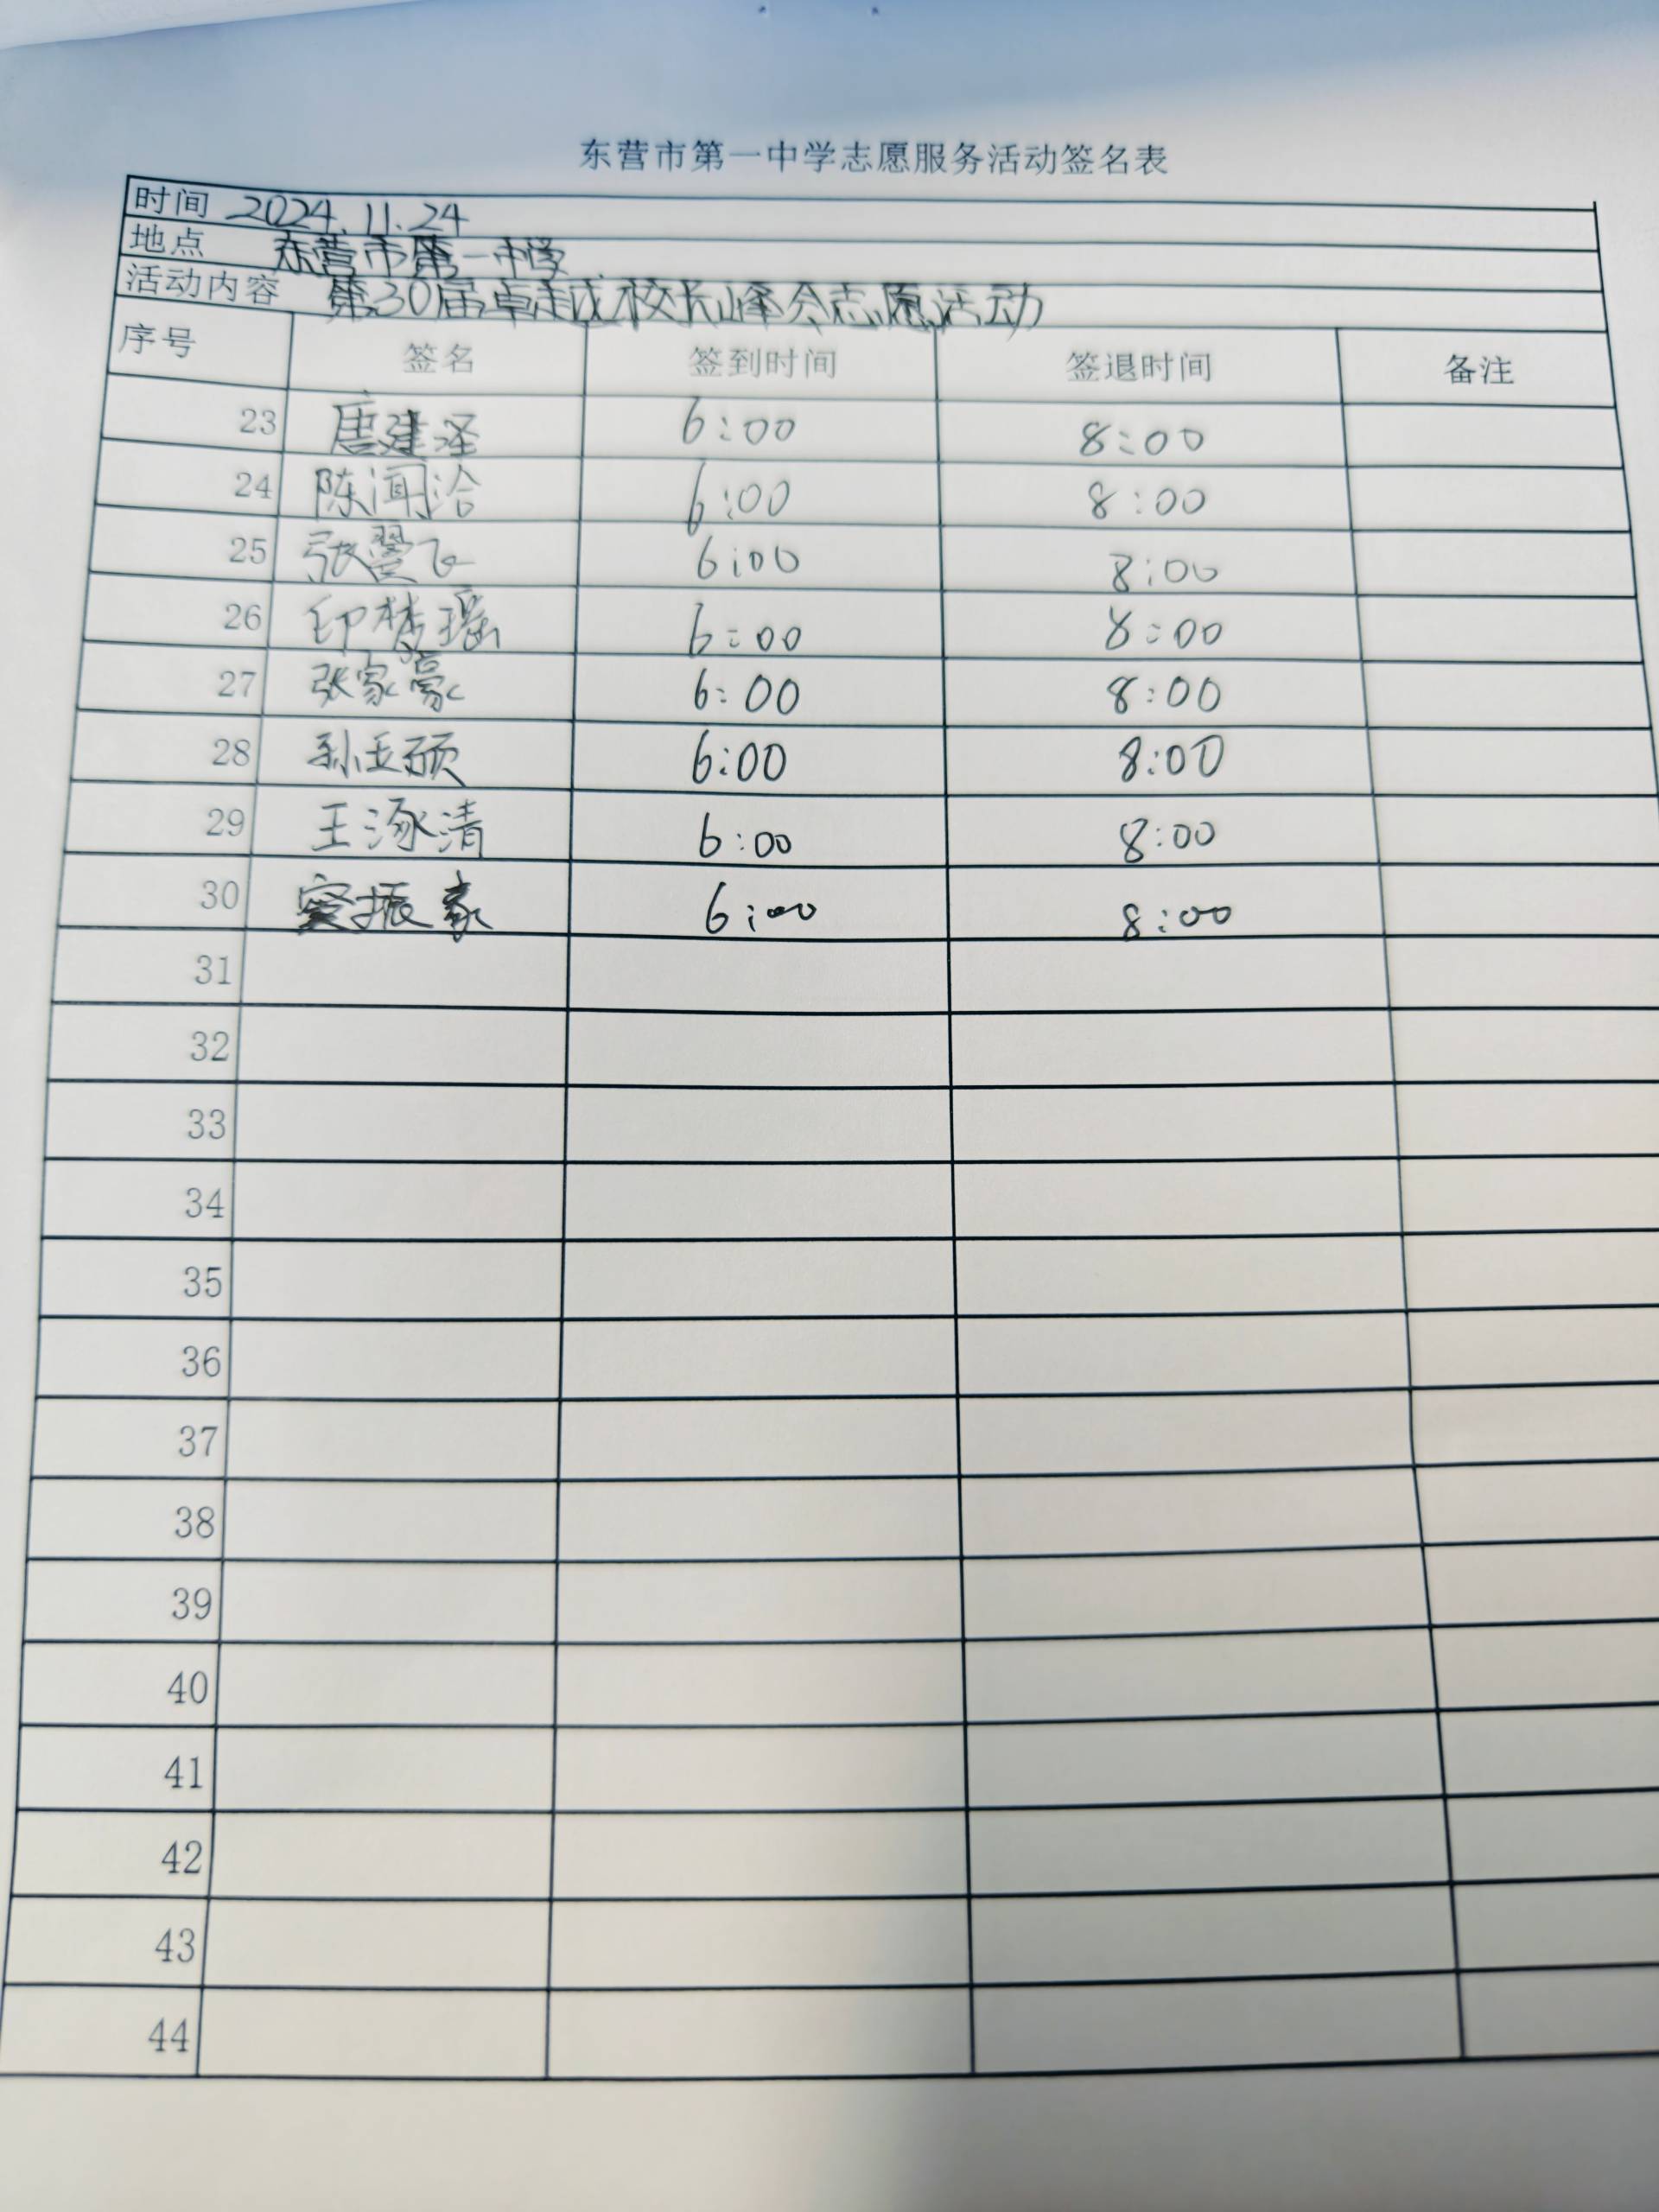 东营市第一中学志愿服务活动签名表
时间 2024.11.24
地点 东营市第一中学
活动内容 第30届卓越校长峰会志愿活动
序号 签名 签到时间 签退时间 备注
23 唐建泽 6:00 8:00
24 陈闻洽 6:00 8:00
25 张翼飞 6:00 8:00
26 印梦瑶 6:00 8:00
27 张家豪 6:00 8:00
28 孙玉硕 6:00 8:00
29 王涿清 6:00 8:00
30 振豪 6:00 8:00
31
32
33
34
35
36
37
38
39
40
41
42
43
44